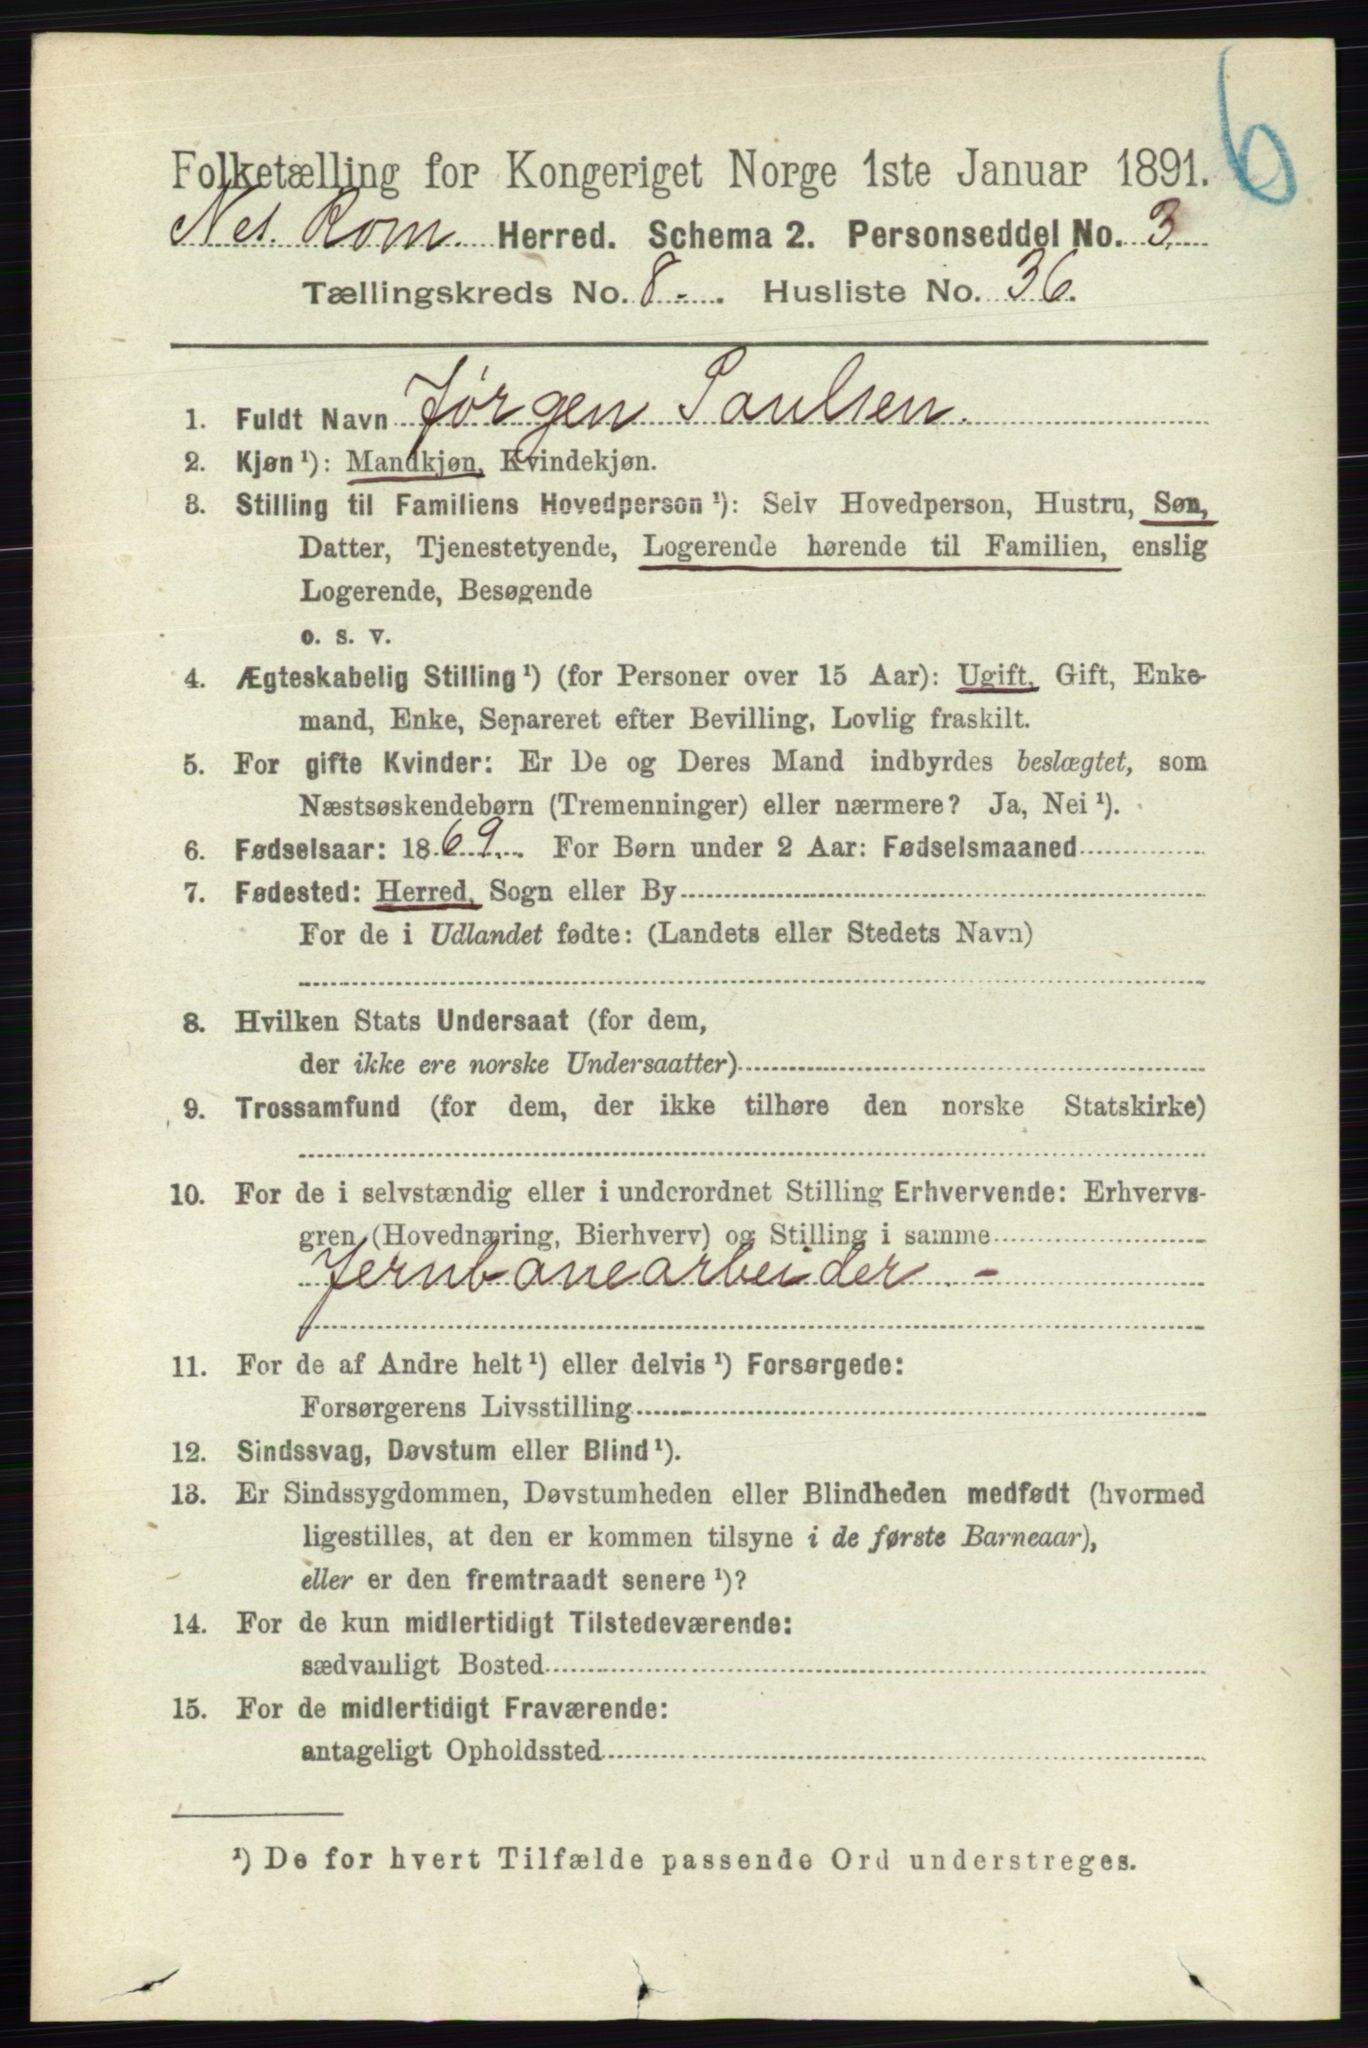 6
Folketælling for Kongeriget Norge 1ste Januar 1891.
Nes. Rom. Herred. Schema 2. Personseddel No. 3
Tællingskreds No. 8. Husliste No. 36.
1. Fuldt Navn Jørgen Paulsen.
2. Kjøn ¹): Mandkjøn, Kvindekjøn.
3. Stilling til Familiens Hovedperson ¹): Selv Hovedperson, Hustru, Søn,
Datter, Tjenestetyende, Logerende hørende til Familien, enslig
Logerende, Besøgende
o. s. v.
4. Ægteskabelig Stilling ¹) (for Personer over 15 Aar): Ugift, Gift, Enke-
mand, Enke, Separeret efter Bevilling, Lovlig fraskilt.
5. For gifte Kvinder: Er De og Deres Mand indbyrdes beslægtet, som
Næstsøskendebørn (Tremenninger) eller nærmere? Ja, Nei ¹).
6. Fødselsaar: 1869. For Børn under 2 Aar: Fødselsmaaned
7. Fødested: Herred, Sogn eller By
For de i Udlandet fødte: (Landets eller Stedets Navn)
8. Hvilken Stats Undersaat (for dem,
der ikke ere norske Undersaatter)
9. Trossamfund (for dem, der ikke tilhøre den norske Statskirke)
10. For de i selvstændig eller i underordnet Stilling Erhvervende: Erhvervs-
gren (Hovednæring, Bierhverv) og Stilling i samme
Jernbanearbeider. -
11. For de af Andre helt ¹) eller delvis ¹) Forsørgede:
Forsørgerens Livsstilling
12. Sindssvag, Døvstum eller Blind ¹).
13. Er Sindssygdommen, Døvstumheden eller Blindheden medfødt (hvormed
ligestilles, at den er kommen tilsyne i de første Barneaar),
eller er den fremtraadt senere ¹)?
14. For de kun midlertidigt Tilstedeværende:
sædvanligt Bosted
15. For de midlertidigt Fraværende:
antageligt Opholdssted
¹) De for hvert Tilfælde passende Ord understreges.